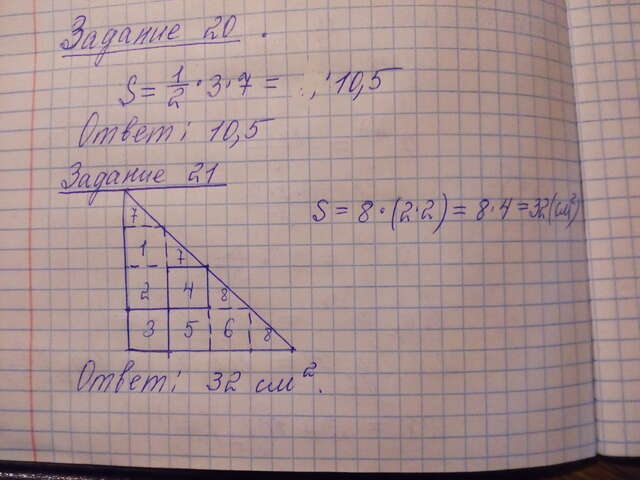 Задание 20.
S = 1/2 · 3 · 7 = 10,5
Ответ: 10,5
Задание 21
S = 8 · (2·2) = 8·4 = 32 (см²)
7
1 7
2 4 8
3 5 6 8
Ответ: 32 см².